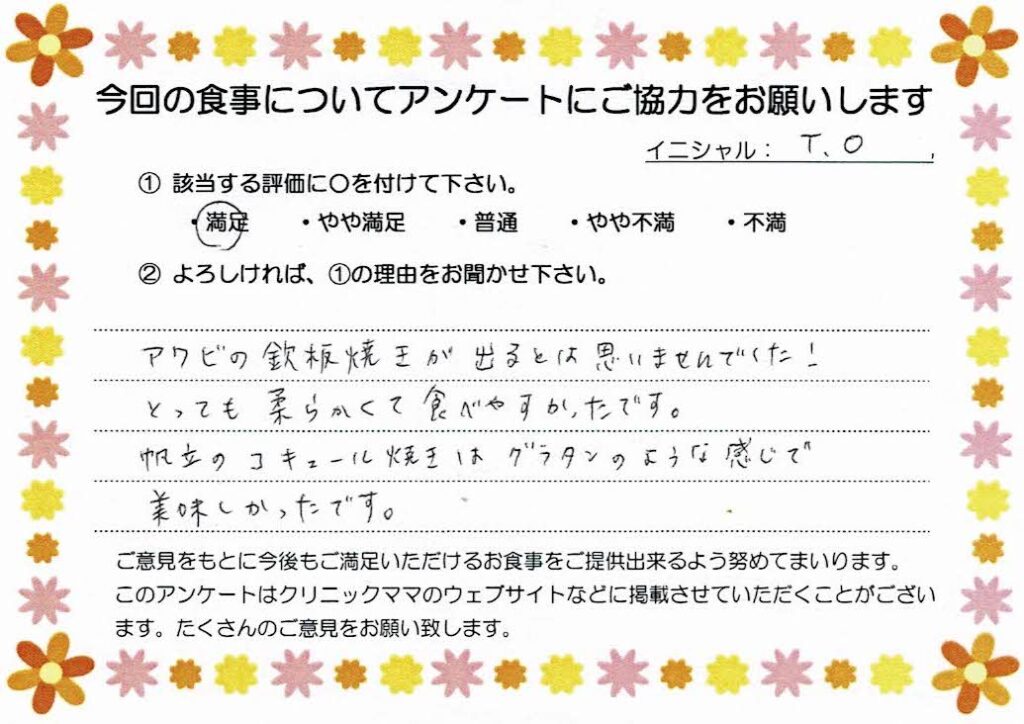 今回の食事についてアンケートにご協力をお願いします
イニシャル： T、O
① 該当する評価に〇を付けて下さい。
・満足 ・やや満足 ・普通 ・やや不満 ・不満
② よろしければ、①の理由をお聞かせ下さい。
アワビの鉄板焼きが出るとは思いませんでした！
とっても柔らかくて食べやすかったです。
帆立のコキュール焼きはグラタンのような感じで
美味しかったです。
ご意見をもとに今後もご満足いただけるお食事をご提供出来るよう努めてまいります。
このアンケートはクリニックママのウェブサイトなどに掲載させていただくことがござい
ます。たくさんのご意見をお願い致します。